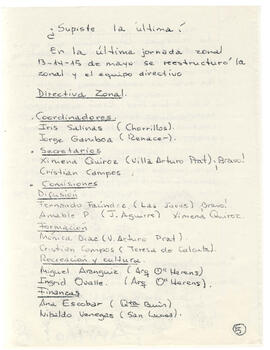 ¿Supiste la última!
En la última jornada zonal
13-14-15 de mayo se reestructuró la
zonal y el equipo directivo
Directiva Zonal.
. Coordinadores
Iris Salinas (Chorrillos).
Jorge Gamboa (Renacer).
. Secretarios
Ximena Quiroz (Villa Arturo Prat). Bravo!
Cristian Campos.
. Comisiones
Difusión
Fernando Faúndez (Las Javas) Bravo!
Amable P. (J. Aguirre) Ximena Quiroz.
Formación
Mónica Diaz (V. Arturo Prat).
Cristian Campos (Teresa de Calcuta).
Recreación y cultura
Miguel Aranguiz (Arq. Oº Herens)
Ingrid Ovalle. (Arq Oº Herens).
Finanzas
Ana Escobar (Qta Buin)
Nibaldo Venegas (San Lucas).